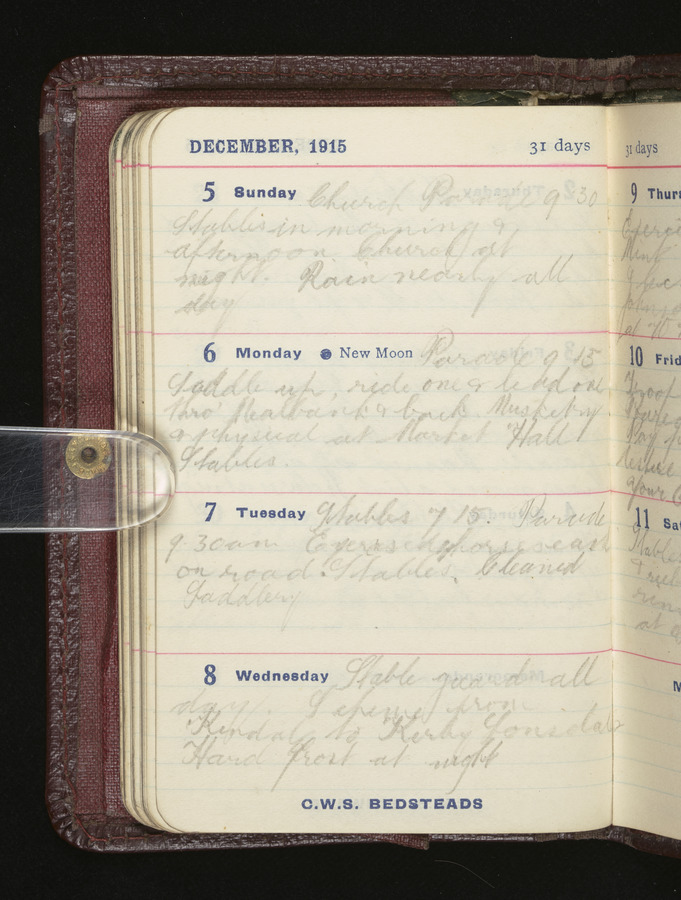 DECEMBER, 1915 31 days
5 Sunday Church Parade 9 30
Stables in morning &
afternoon. Church at
night. Rain nearly all
day
6 Monday New Moon Parade 9 15
Saddle up, ride one & lead one
thro' Mealbank & back. Musketry
& physical at Market Hall
Stables.
7 Tuesday Stables 7 15. Parade
9-30am Exercise horses east
on road. Stables. Cleaned
Saddlery
8 Wednesday Stable guard all
day. from
Kendal to Kirby Lonsdale
Hard frost at night
C.W.S. BEDSTEADS
31 days
9 Thur
10 Frid
11 Sat
at